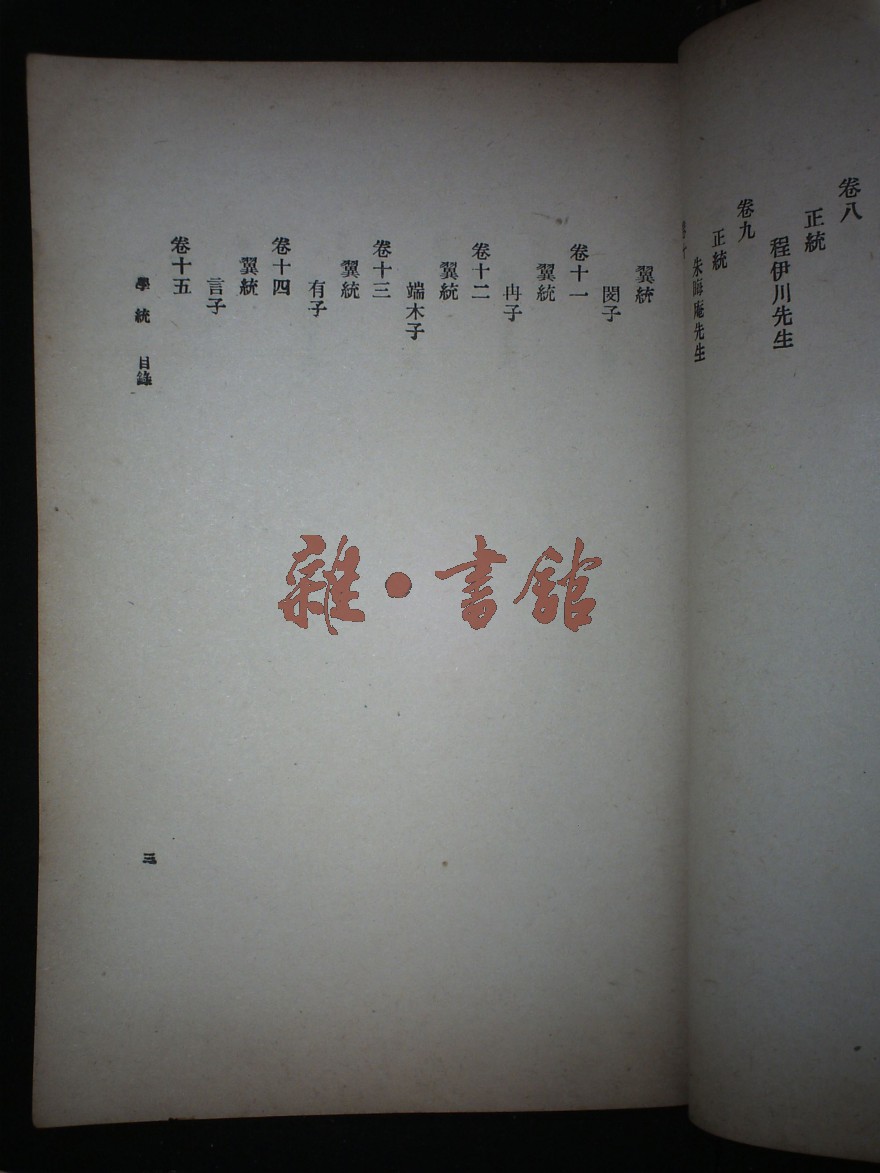 卷八
正統
程伊川先生
卷九
正統
朱晦庵先生
翼統
閔子
卷十一
翼統
冉子
卷十二
翼統
端木子
卷十三
翼統
有子
卷十四
翼統
言子
卷十五
學統 目錄
三
雜·書館